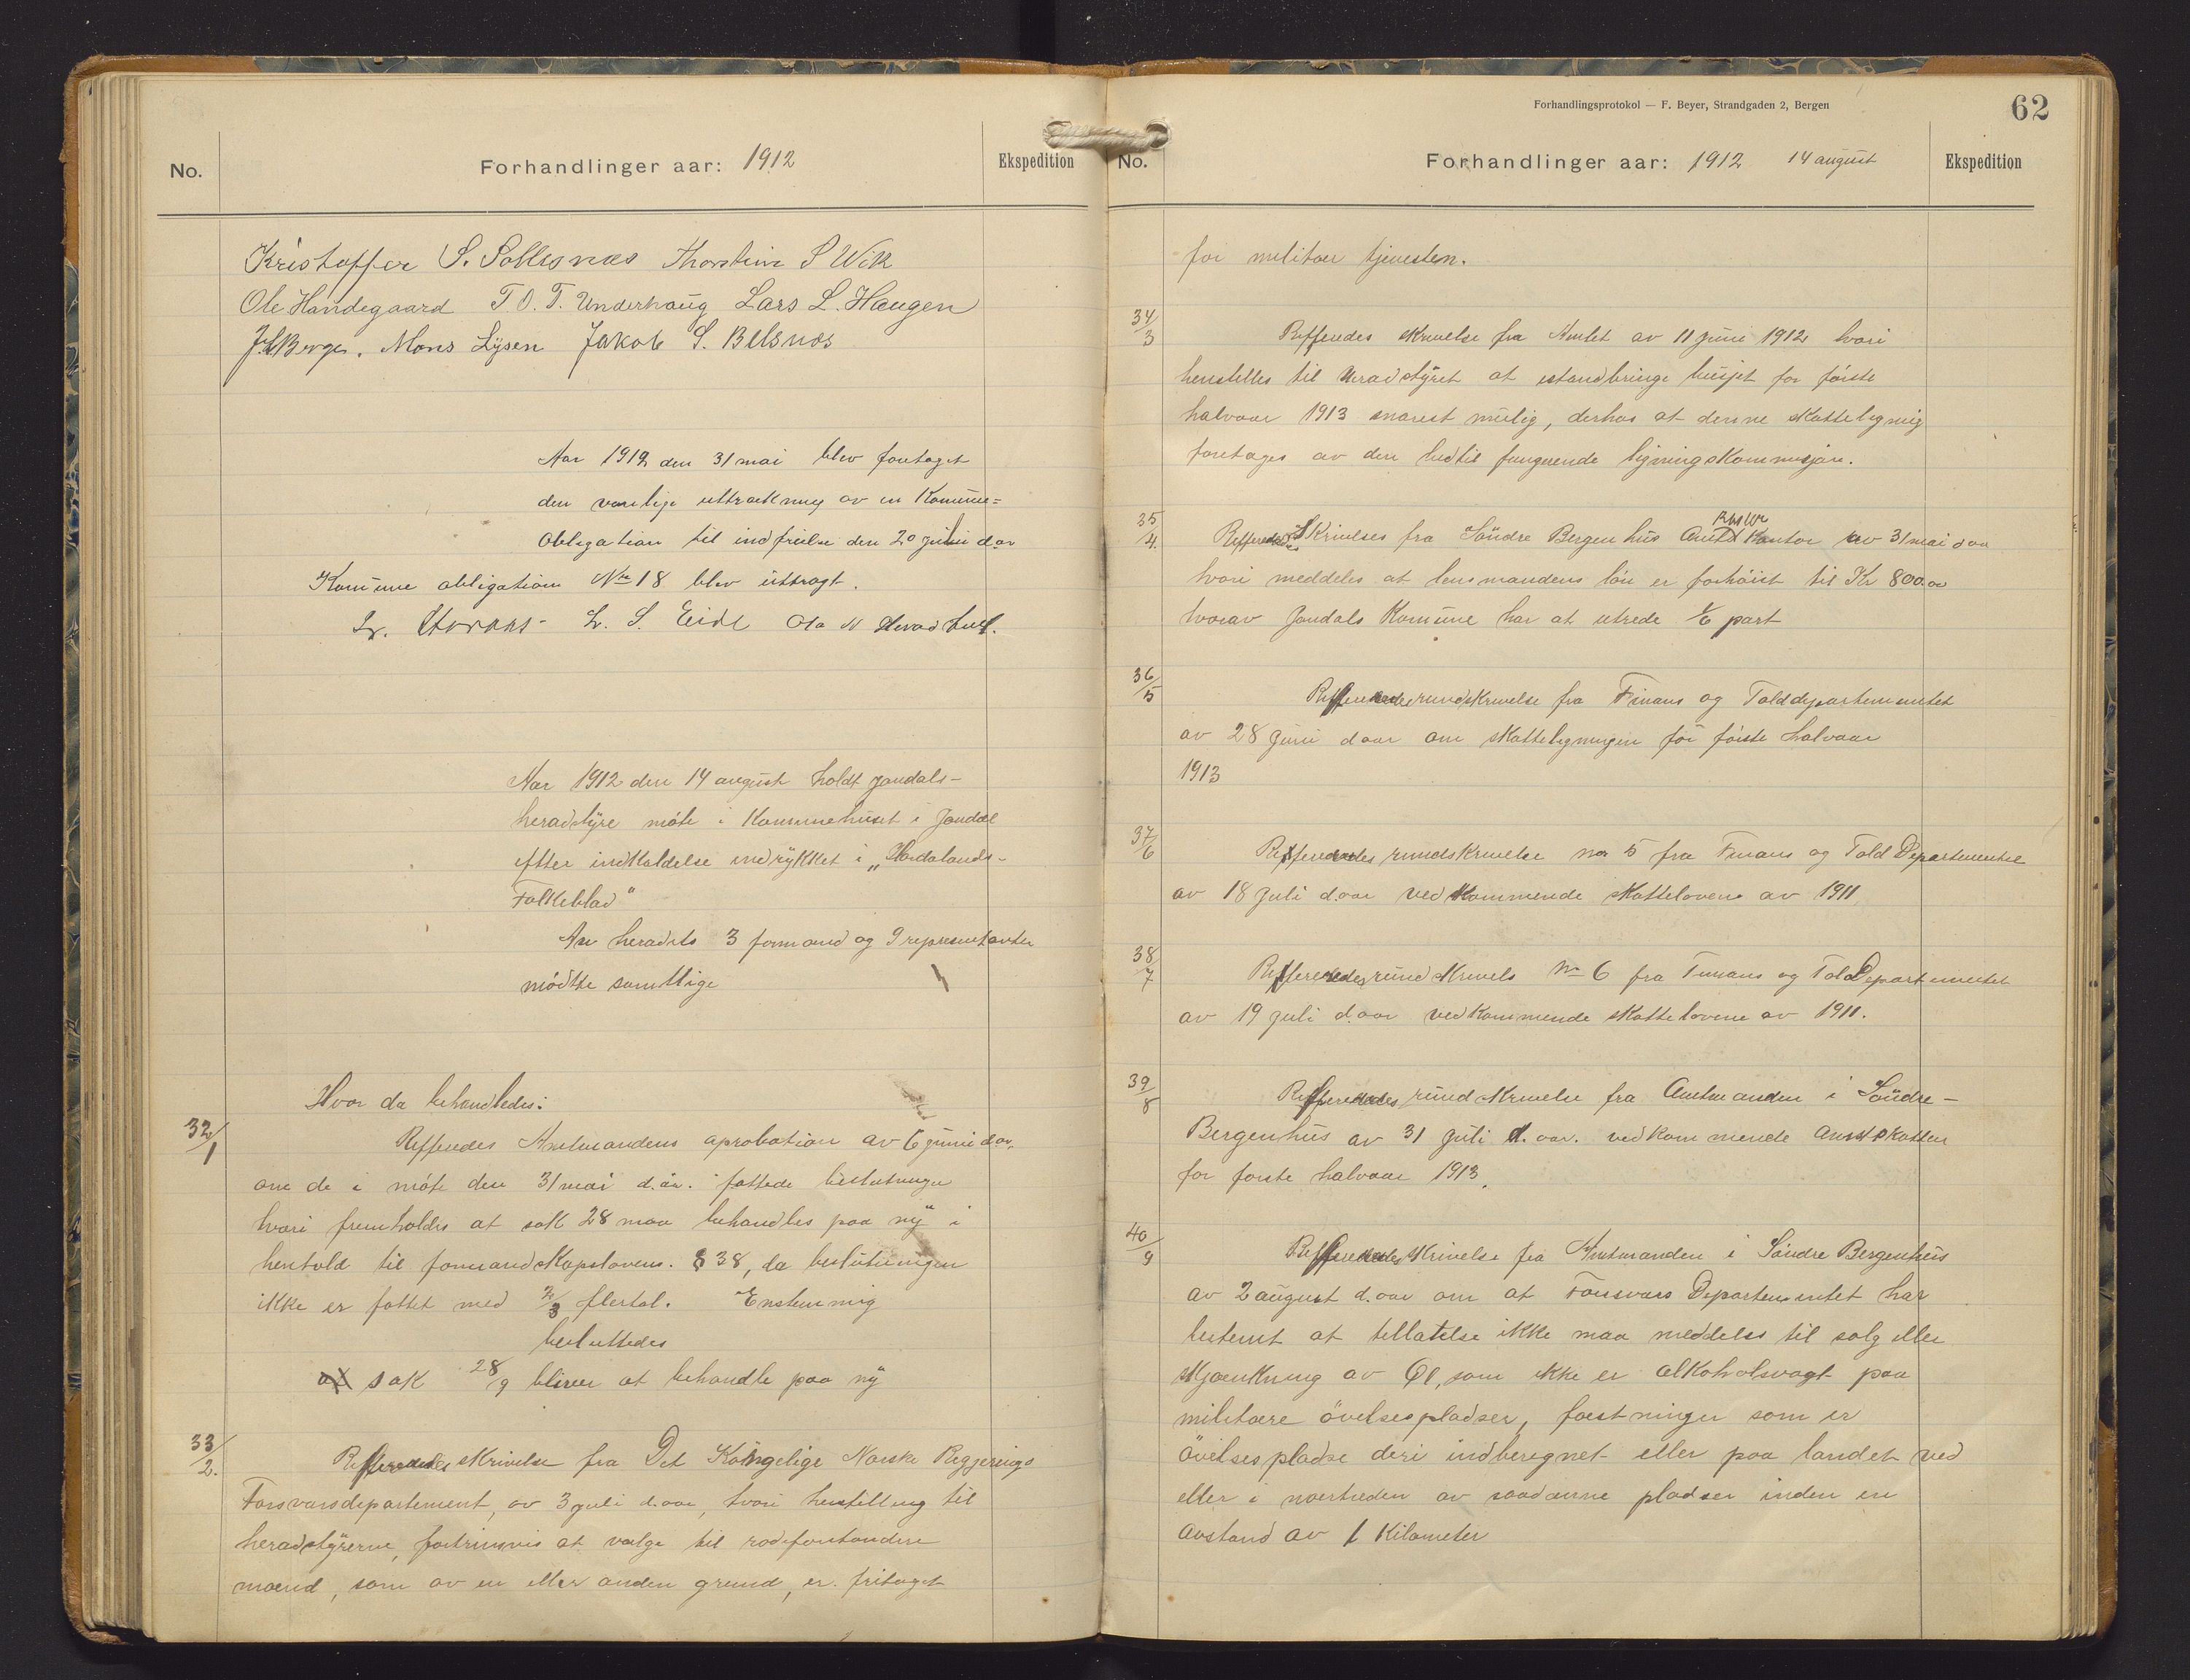 No.
Forhandlinger aar: 1912
Ekspedition
Kristoffer S. Sollesnes Thorstein S Wik
Ole Handegaard T O. T. Underhaug Lars L. Haugen
Berge. Mons Lysen Jakob S. Belsnes
Aar 1912 den 31 mai blev foretaget
den vanlige uttrækning av en Komune=
obligation til indfrielse den 20 juli d.ar
Komune obligation No 18 blev uttragt.
L. S. Eide Ola N
Aar 1912 den 14 august holdt Jondals-
heradstyre møte i Kommunehuset i Jondal
efter indkaldelse indrykket i „Hordalands-
Folkeblad"
Av heradets 3 formænd og 9 representanter
mødtte samtlige
Hvor da behandledes:
32/1
Refferedes Amtmandens aprobation av 6 juni d.ar.
om de i møte den 31 mai d.aar. fattede beslutninger
hvori fremholdes at sak 28 maa behandles paa ny i
henhold til formandskapslovens. § 38, da beslutningen
ikke er fattet med 2/3 flertal. Enstemmig
besluttedes
at sak 28/9 bliver at behandle paa ny
33/2.
Refferedes skrivelse fra Det Kongelige Norske Regjerings
Forsvarsdepartement, av 3 juli d.aar, hvori henstilling til
heradstyrerne, fortrinsvis at vælge til rodeforstandere
mænd, som av en eller anden grund, er fritaget
Forhandlingsprotokol — F. Beyer, Strandgaden 2, Bergen
62
No.
Forhandlinger aar: 1912 14 august
Ekspedition
for militær tjenesten.
34/3
Refferedes skrivelse fra Amtet av 11 juni 1912 hvori
henstilles til heradstyret at istandbringe busjet for første
halvaar 1913 snarest mulig, derhos at denne skatteligning
foretages av den hidtil fungerende ligningskommisjon.
35/4.
Refferedes Skrivelses fra Søndre Bergenhus Amts Kontor av 31 mai d aa
hvori meddeles at lensmandens løn er forhøist til Kr 800.00
hvorav Jondals Komune har at utrede 1/6 part
36/5
Refferedes rundskrivelse fra Finans og Tolddepartementet
av 28 Juni d aar om skatteligningen for første halvaar
1913
37/6
Refferedes rundskrivelse no 5 fra Finans og Told Departementet
av 18 juli d.aar vedkommende skattelovene av 1911
38/7
Refferedes rundskrivels No 6 fra Finans og Told Departementet
av 19 juli d.aar vedkommende skattelovene av 1911.
39/8
Refferedes rundskrivelse fra Amtmanden i Søndre-
Bergenhus av 31 juli d.aar. vedkommende amtsskatten
for første halvaar 1913.
40/9
Refferedes skrivelse fra Amtmanden i Søndre Bergenhus
av 2 august d.aar om at Forsvars Departementet har
bestemt at tillatelse ikke maa meddeles til salg eller
skjænkning av Øl, som ikke er alkoholsvagt paa
militære øvelsespladser, fæstninger som er
øvelsespladse deri indberegnet eller paa landet ved
eller i nærheden av saadanne pladser inden en
avstand av 1 Kilometer